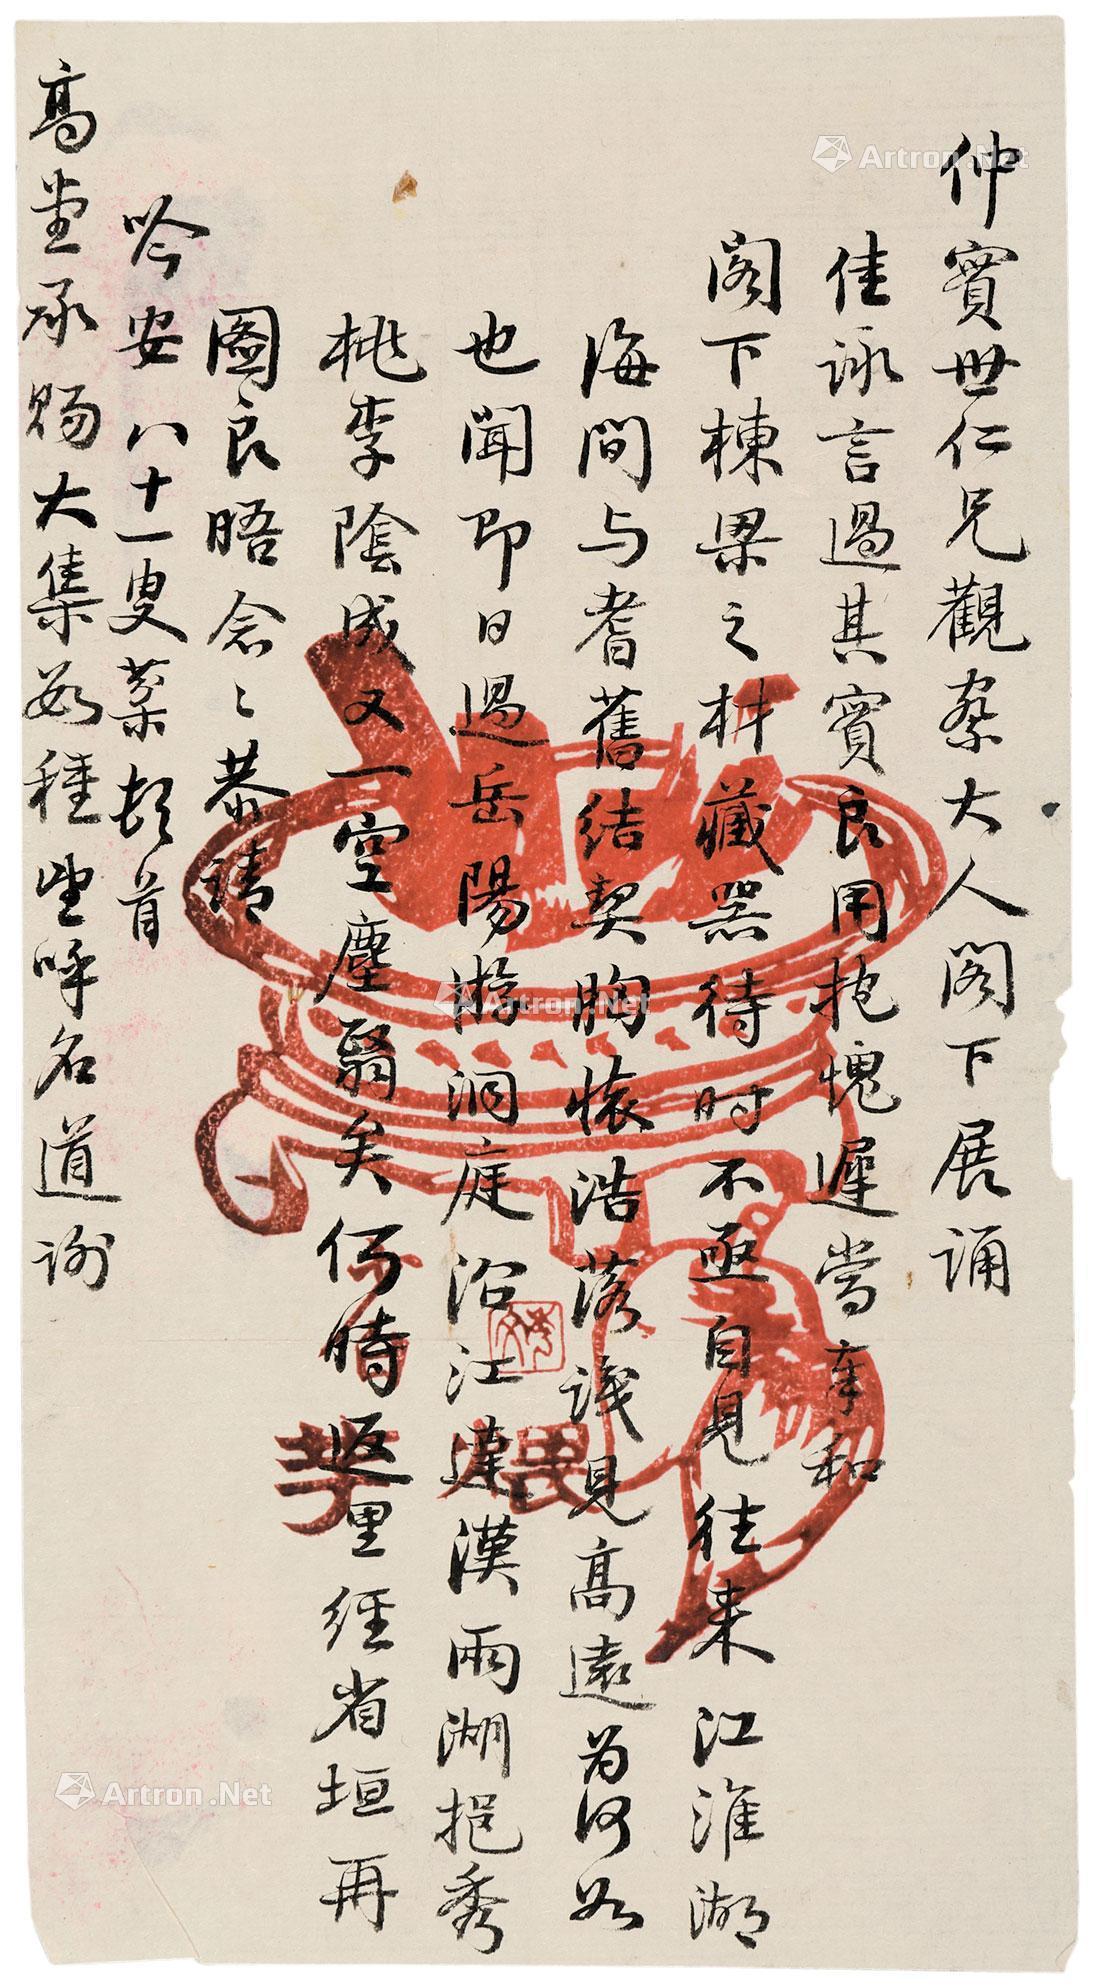 仲實世仁兄觀察大人閣下展誦
佳詠言過其實良用抱愧遲當奉和
閣下棟梁之材藏器待时不亟自見往来江淮湖
海間与耆舊結契胸懷浩落識見高遠为何如
也聞即日過岳陽游洞庭沿江達漢兩湖挹秀
桃李陰成又一空塵翳矣何時返里經省垣再
圖良晤念〻恭請
吟安八十一叟葉頓首
高堂承賜大集数種望呼名道謝
畏
Artron.Net
Artron.Net
Artron.Net